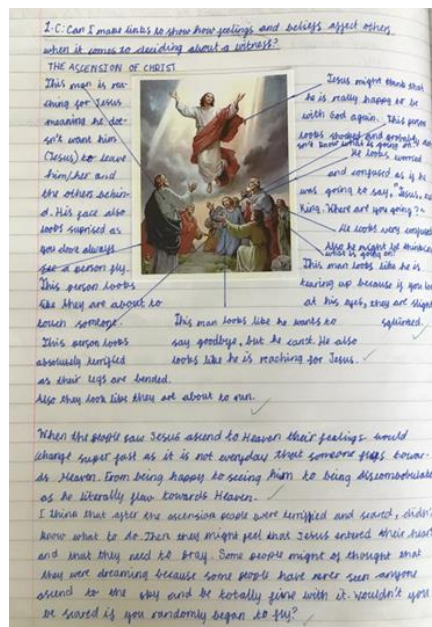 1-C: Can I make links to show how feelings and beliefs affect others
when it comes to deciding about a witness?
THE ASCENSION OF CHRIST
This man is rea-
ching for Jesus
meaning he doe-
sn't want him
(Jesus) to leave
him/her and
the others behin-
d. His face also
looks suprised as
you dont always
see a person fly.
This person looks
like they are about to
touch someone.
This person looks
absolutely terrified
as their legs are bended.
Also they look like they are about to run.
This man looks like he wants to
say goodbye, but he cant. He also
looks like he is reaching for Jesus.
Jesus might think that
he is really happy to be
with God again. This person
looks shocked and probably do
sn't know what is going on.
He looks worried
and confused as if he
was going to say, "Jesus, my
King. Where are you going?"
He looks very confused
Also he might be thinking
what is going on!
This man looks like he is
tearing up because if you look
at his eyes, they are slight
squinted.
When the people saw Jesus ascend to Heaven their feelings would
change super fast as it is not everyday that someone flys towar-
ds Heaven. From being happy to seeing him to being discombobulate
as he literally flew towards Heaven.
I think that after the ascension people were terrified and scared, didn't
know what to do. Then they might feel that Jesus entered their heart
and that they need to pray. Some people might of thought that
they were dreaming because some people have never seen anyone
ascend to the sky and be totally fine with it. Wouldn't you
be scared if you randomly began to fly?